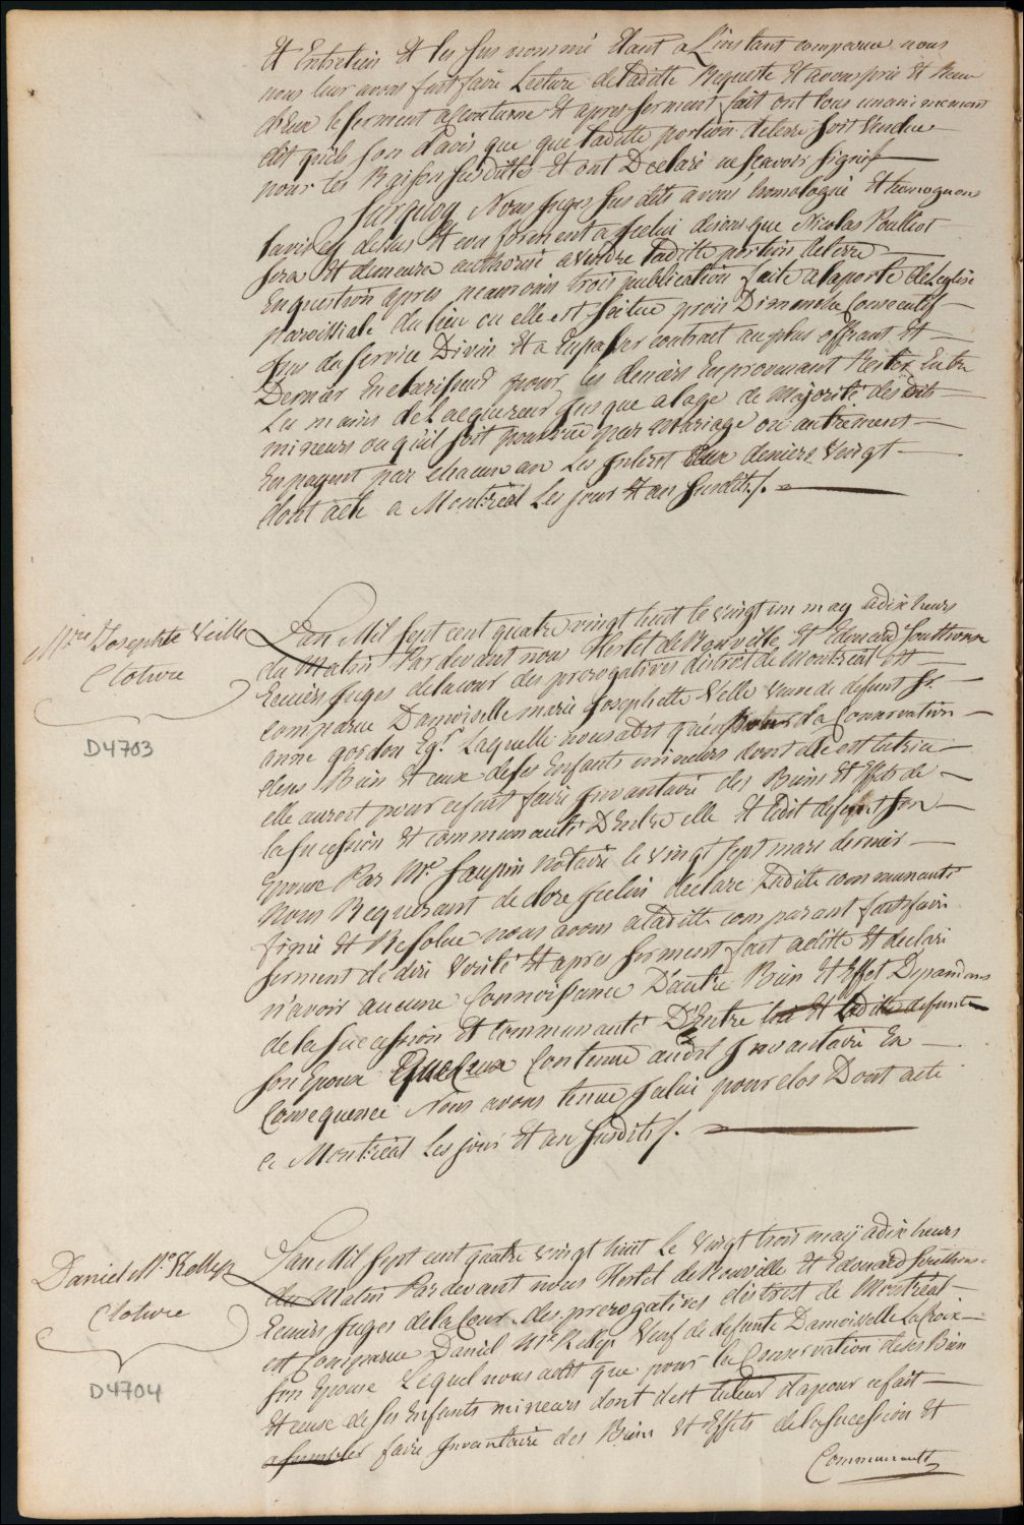 Et Entretien Et les sus nommé Etant a L'instant comparue nous
nous leur avons fait faire Lecture de laditte Requeste Et avons pris Et Recu
d'Eux le serment accoutumé Et apres serment fait ont tous unanimement
dit quils son d'avis que que laditte portion deterre soit Vendue
pour les Raison susdittes Et ont Declaré ne scavoir signé
Surquoy Nous Juges susdits avons homologué Et homogons
l'avis cy dessus Et conformement a Icelui disons que Nicolas Poulliot
sera Et demeure authorisé a vendre laditte portion deterre
En question apres neanmoins trois publication faite a laporte de L'eglise
paroissiale du lieu ou elle est scitue trois Dimanche Consecutif
issus du service Divin Et a En passer contract au plus offrant Et
Dernier Encherisseur pour les deniers En provenant Rester Entre
Les mains de L'acquereur jusque a lage de majorité des dits
mineurs ou qu'il soit pourvue par Mariage ou autrement
En payent par chacun an Les Interest aux deniers Vingt
dont acte a Montréal Les jour Et an susdits /.
Mrie Josephte Veille
Cloture
D4703
L'an Mil sept cent quatre vingt huit le vingt un may a dix heurs
du Matin Pardevant nous Hertel de Rouville Et Edouard Southouse
Ecuiers Juges de la cour des prerogatives district de Montréal Est
Comparue Damoiselle marie Josephette Velle veuve de defunt Sr.
anne gordon Eqr. Laquelle nous a dit qu'en pour la Conservation
de ses Biens Et ceux de ses Enfants mineurs dont elle est tutrice
elle auroit pour cefait faire Inventaire des Biens Et Effets de
la sucession Et communauté D'Entre elle Et ledit defunt son
Epoux Par Me. Saupin Notaire le vingt sept mars dernier
Nous Requerant de clore Icelui declare Laditte communauté
finie Et Resolue nous avons a laditte comparant fait faire
serment de dire Verité Et apres serment fait a ditte Et declaré
n'avoir aucune Connoissance D'autre Bien Et Effet Dépandans
de la sucession Et Communauté D'Entre lui Et ladite defunte
son Epoux Que Ceux Contenue audit Inventaire En
Consequence Nous avons tenue Icelui pour clos Dont acte
a Montréal Les jour Et an susdits /.
Daniel Mc Kellep
Cloture
D4704
L'an Mil sept cent quatre vingt huit Le Vingt trois may a dix heurs
du Matin Pardevant nous Hertel de Rouville Et Edouard Southouse
Ecuiers Juges de la Cour des prerogatives district de Montréal
est Comparue Daniel Mc Kellep Veuf de defunte Damoiselle LaCroix
son Epouse Lequel nous adit que pour la Conservation de ses Bien
Et ceux de ses Enfants mineurs dont il est tuteur Il a pour cefait
assembler faire Inventaire des Biens Et Effets de la sucession Et
Communauté